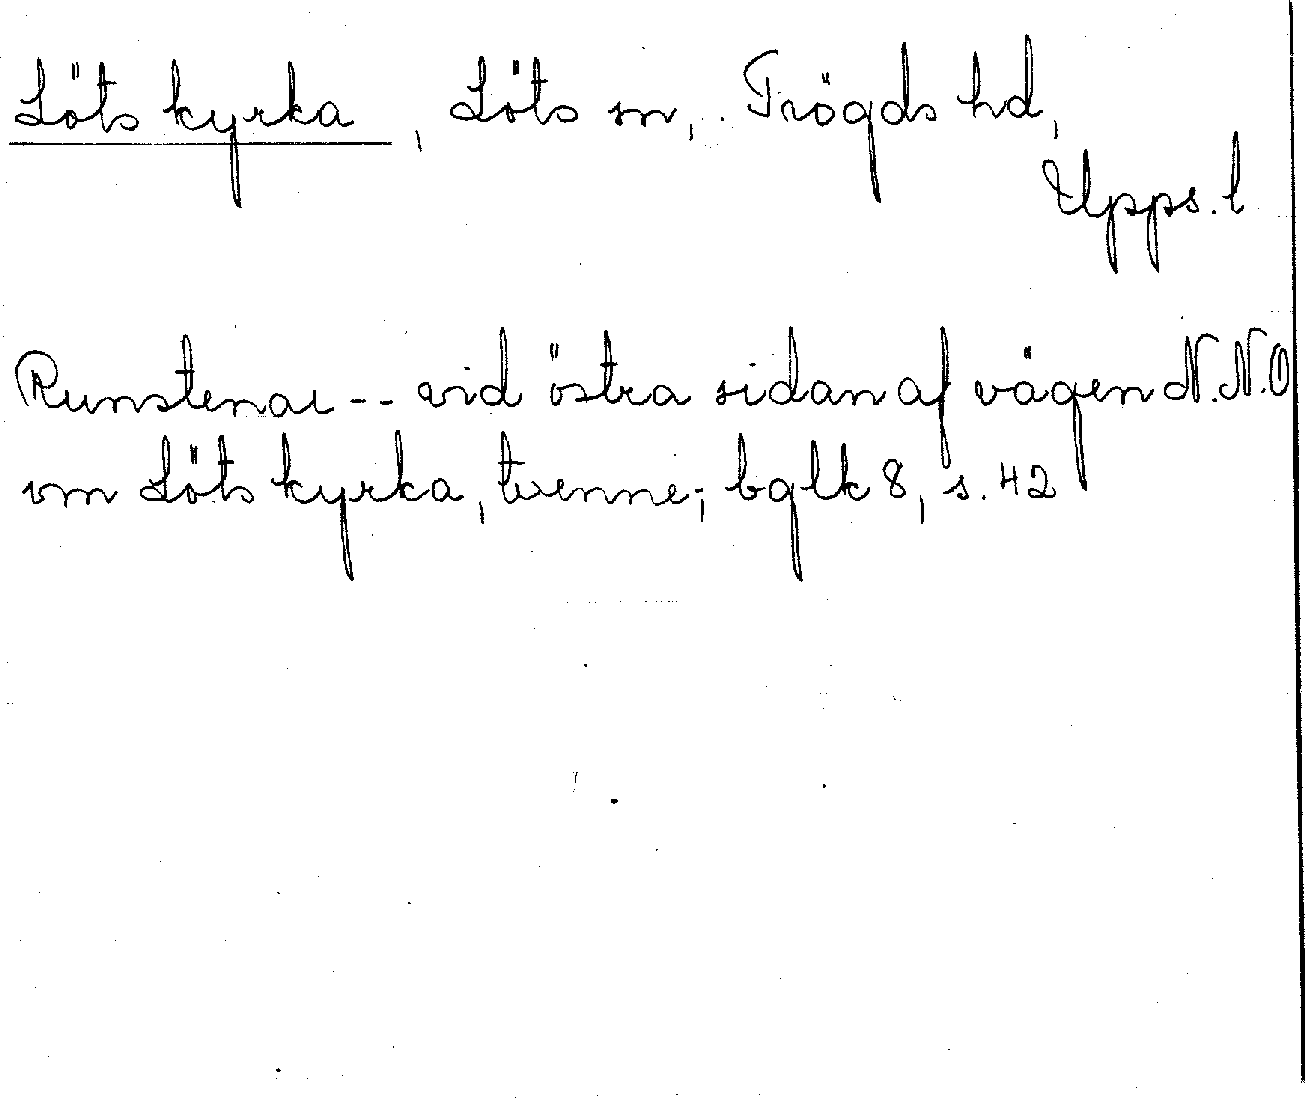 Löts kyrka, Löts sn, Trögds hd,
Upps. l
Runstenar -- vid östra sidan af vägen N.N.O
om Löts kyrka, tvenne; bglk 8, s. 42